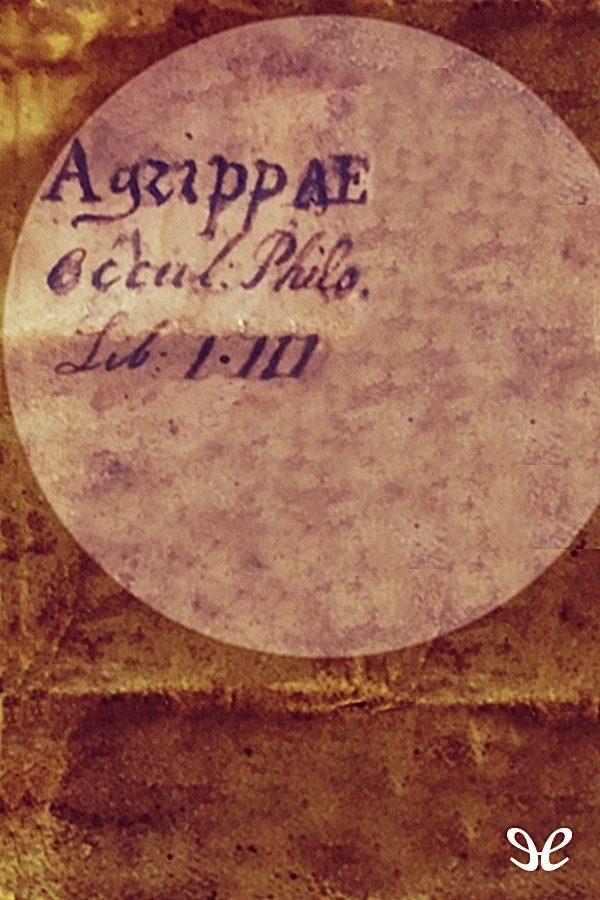 AgrippAE
Occul. Philo.
Lib. I.III